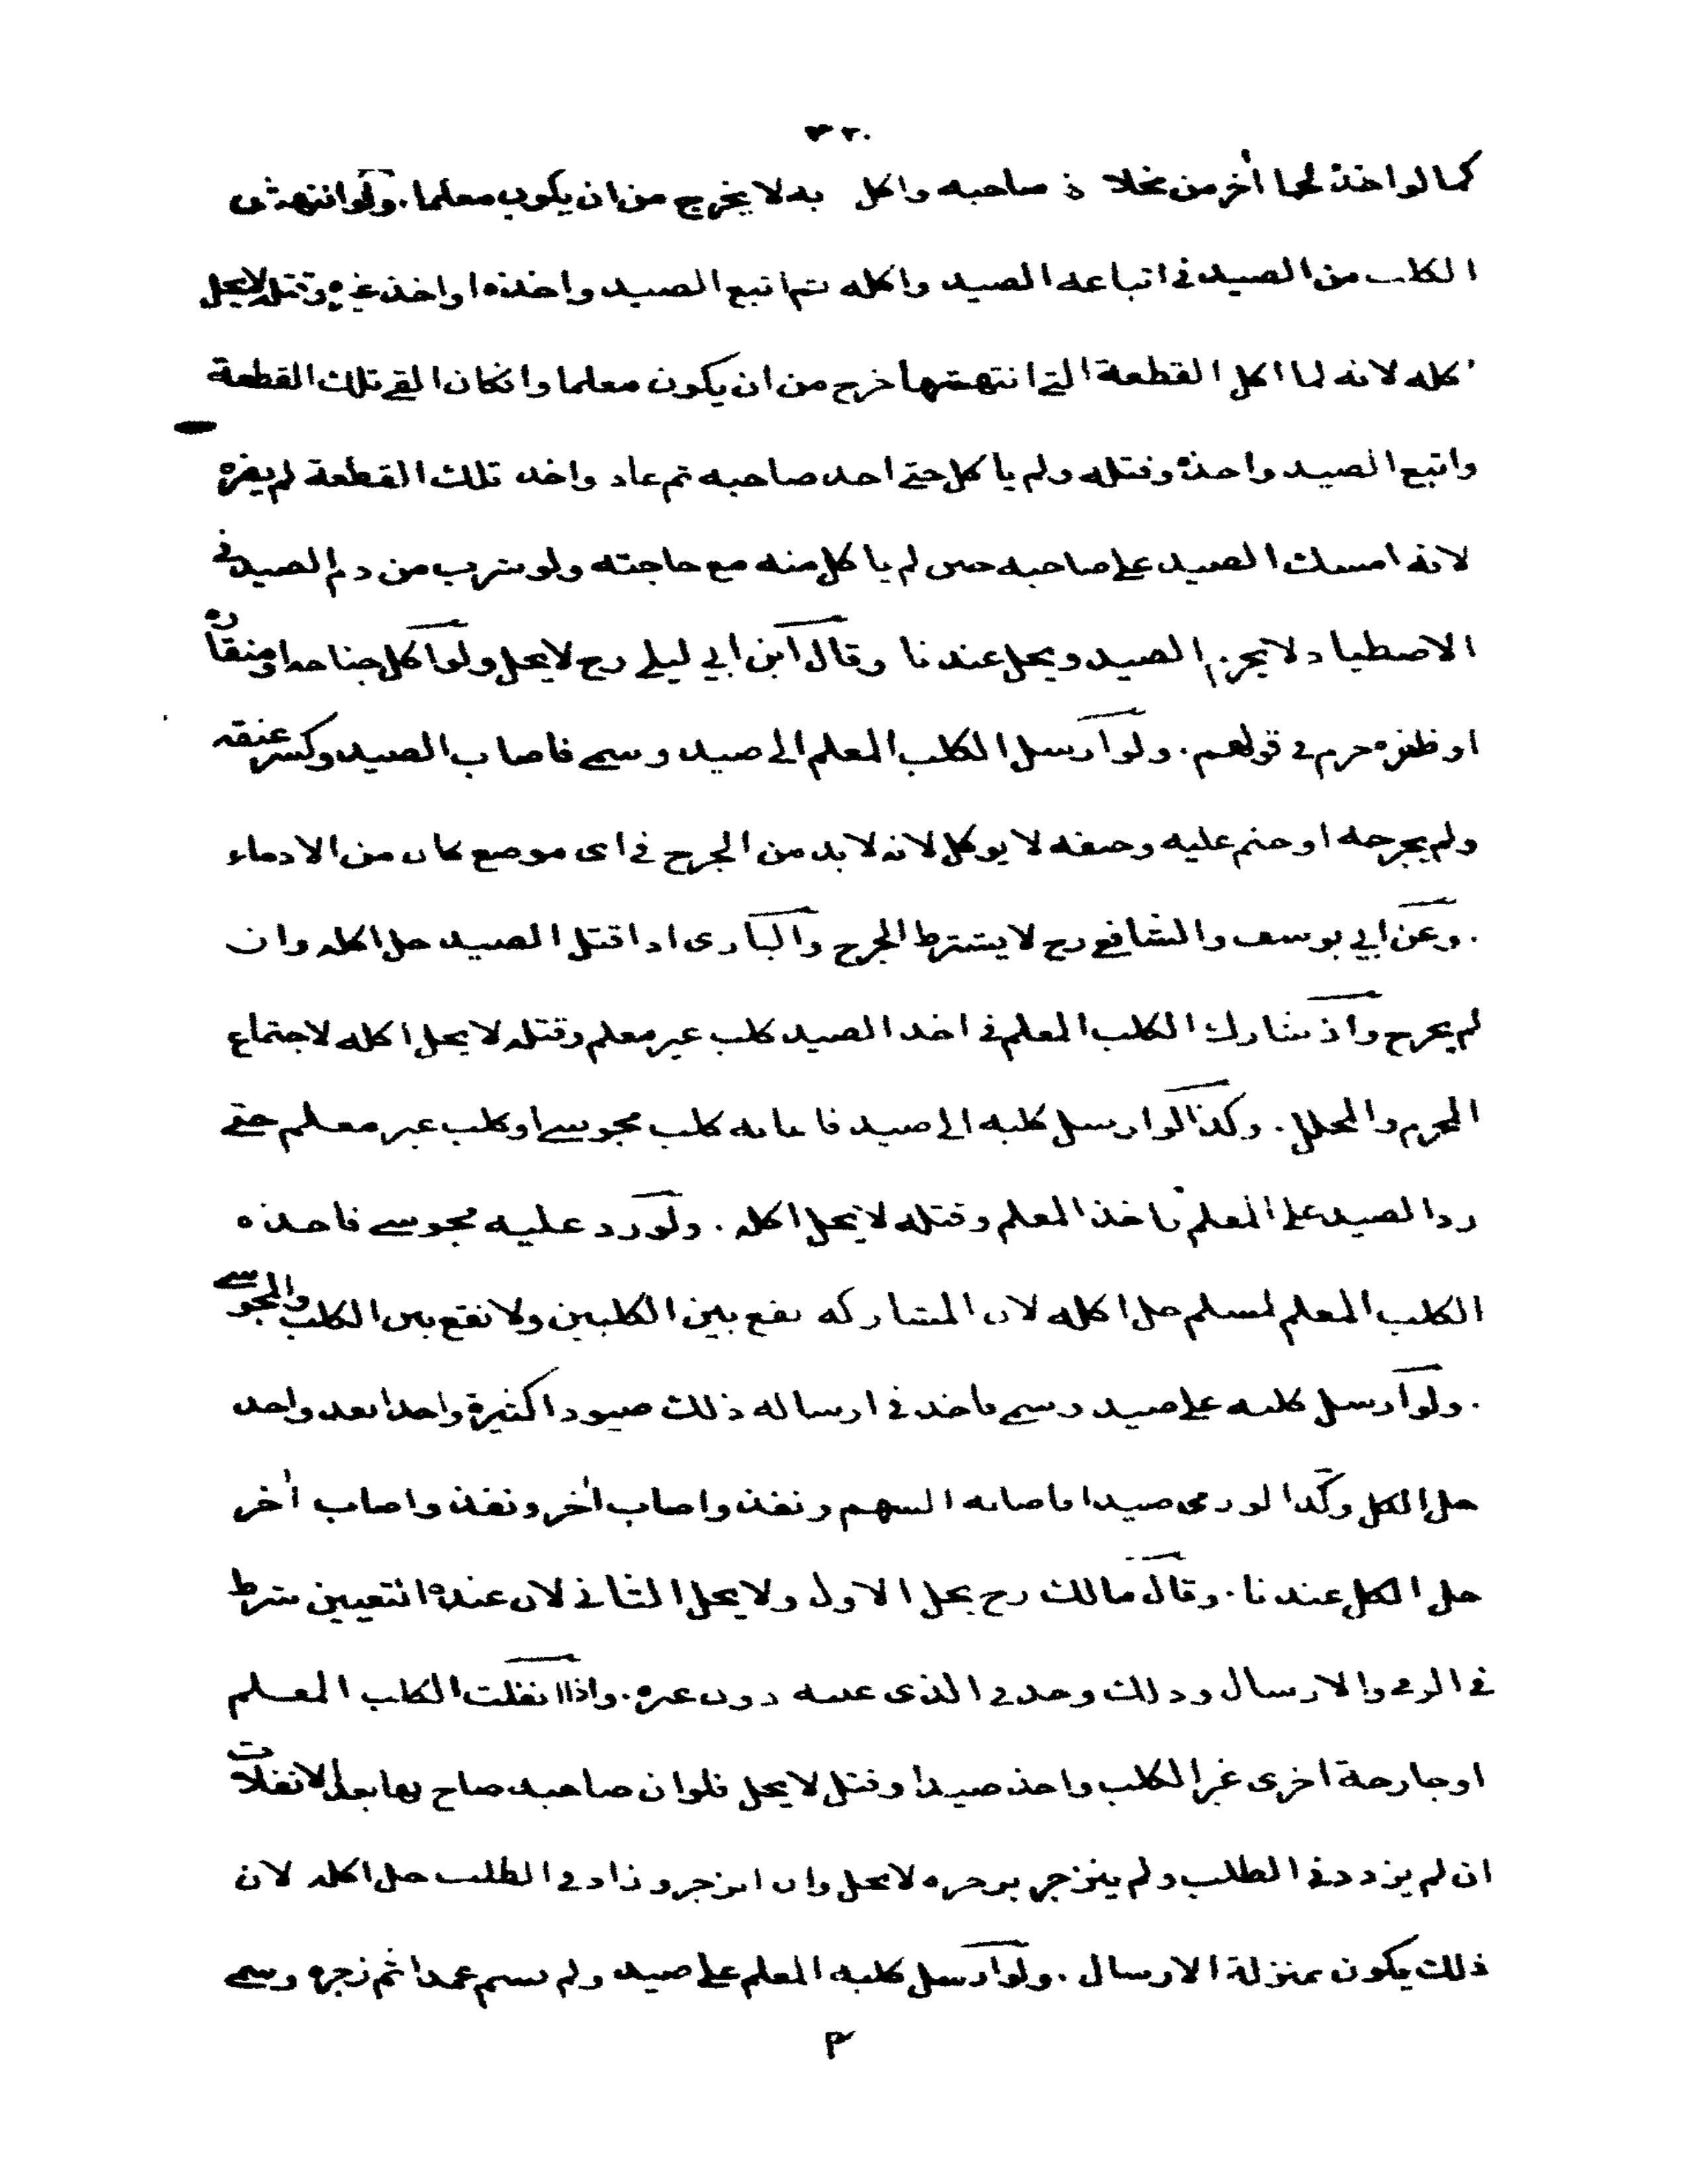 ٣٢٠
كما لو اخذ لحما اٰخر من مخلاة صاحبه واكل به لا يخرج من ان يكون معلما. ولو انتهش
الكلب من الصيد في اتباعه الصيد واكله ثم اتبع الصيد واخذه او اخذ غيره وقتله لا يحل
اكله لانه لما اكل القطعة التي انتهشها خرج من ان يكون معلما وانكان القى تلك القطعة
واتبع الصيد واخذه وقتله ولم ياكل حتى اخذ صاحبه ثم عاد واخذ تلك القطعة لم يضره
لانه امسك الصيد على صاحبه حين لم ياكل منه مع حاجته ولو شرب من دم الصيد في
الاصطياد لا يحرم الصيد ويحل عندنا وقال ابن ابي ليلى رح لا يحل ولو اكل جناحه او منقاره
او ظفره حرم في قولهم. ولو ارسل الكلب المعلم الى صيد وسمى فاصاب الصيد وكسر عنقه
ولم يجرحه او جثم عليه وخنقه لا يوكل لانه لا بد من الجرح في اى موضع كان من الادماء
. وعن ابي يوسف والشافعي رح لا يشترط الجرح والبازى اذا قتل الصيد حل اكله وان
لم يجرح واذ شارك الكلب المعلم في اخذ الصيد كلب غير معلم وقتله لا يحل اكله لاجتماع
المحرم والمحلل. وكذا لو ارسل كلبه الى صيد فاعانه كلب مجوسي او كلب غير معلم حتى
رد الصيد على المعلم فاخذ المعلم وقتله لا يحل اكله. ولو رد عليه مجوسي فاخذه
الكلب المعلم لمسلم حل اكله لان المشاركه تقع بين الكلبين ولا تقع بين الكلب والمجوسي
. ولو ارسل كلبه على صيد وسمى فاخذ في ارساله ذلك صيودا كثيرة واحدا بعد واحد
حل الكل وكذا لو رمى صيدا فاصابه السهم ونفذ واصاب اٰخر ونفذ واصاب اٰخر
حل الكل عندنا. وقال مالك رح يحل الاول ولا يحل الثاني لان عنده التعيين شرط
في الرمي والارسال وذلك وجد في الذى عينه دون غيره. واذا انفلت الكلب المعلم
او جارحة اخرى غير الكلب واخذ صيدا وقتل لا يحل فلو ان صاحبه صاح بها بعد الانفلات
ان لم يزدد في الطلب ولم ينزجر بزجره لا يحل وان انزجر وزاد في الطلب حل اكله لان
ذلك يكون بمنزلة الارسال. ولو ارسل كلبه المعلم على صيد ولم يسم عمدا ثم زجره وسمى